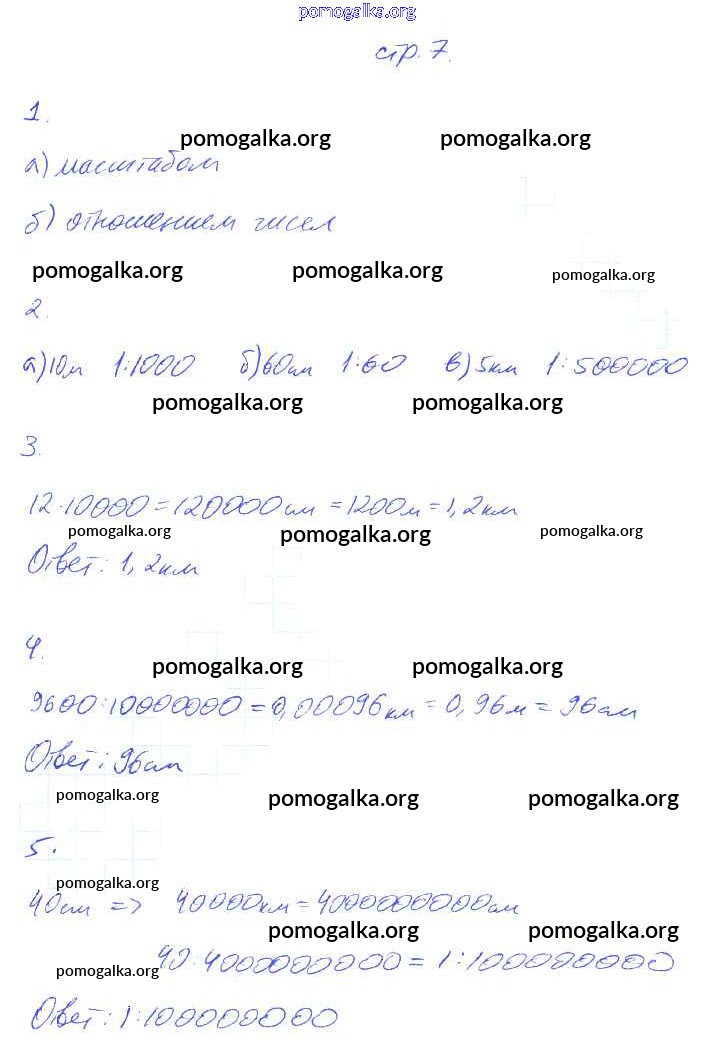 pomogalka.org
стр. 7.
1.
pomogalka.org pomogalka.org
а) масштабом
б) отношением чисел
pomogalka.org pomogalka.org pomogalka.org
2.
а) 10м 1:1000 б) 60см 1:60 в) 5км 1:500000
pomogalka.org pomogalka.org
3.
12·10000=120000см=1200м=1,2км
pomogalka.org pomogalka.org pomogalka.org
Ответ: 1,2км
4.
pomogalka.org pomogalka.org
9600:10000000=0,00096км=0,96м=96см
Ответ: 96см
pomogalka.org pomogalka.org pomogalka.org
5.
pomogalka.org
40см => 40000км=4000000000см
pomogalka.org pomogalka.org
40:4000000000=1:100000000
pomogalka.org
Ответ: 1:100000000